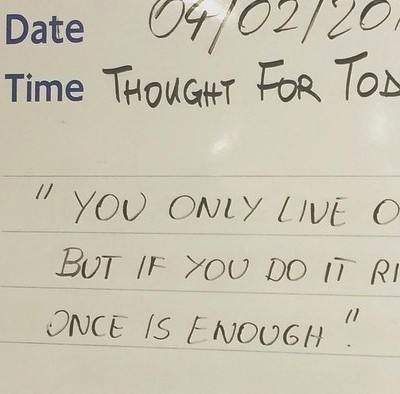 Date 04/02/20
Time THOUGHT FOR TOD
" YOU ONLY LIVE O
BUT IF YOU DO IT RI
ONCE IS ENOUGH".